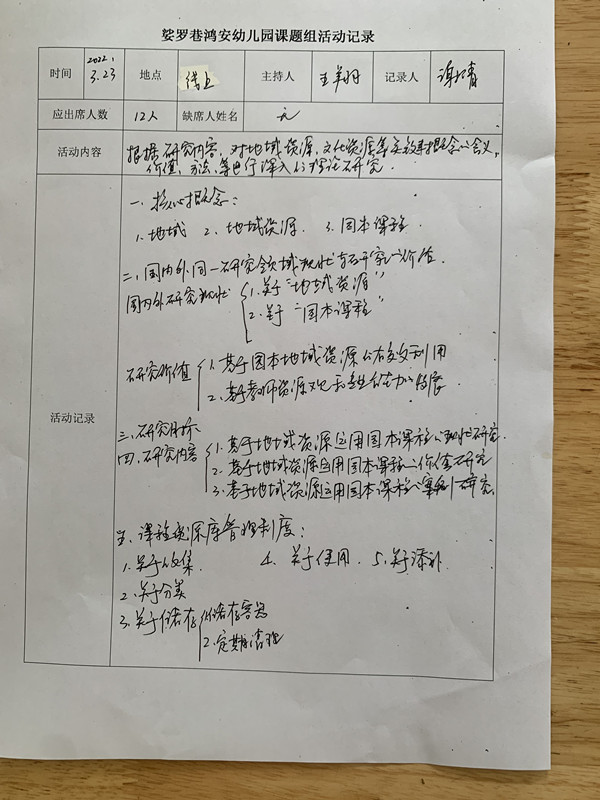 娑罗巷鸿安幼儿园课题组活动记录
时间 2022.3.23 地点 线上 主持人 记录人 谢晴
应出席人数 12人 缺席人姓名 无
活动内容 根据研究内容，对地域资源、文化资源等实效其概念、含义、
价值、方法、等进行深入的理论研究.
活动记录
一、核心概念:
1.地域 2.地域资源. 3.园本课程.
二、国内外同一研究领域现状与研究的价值.
国内外研究现状 1.关于“地域资源”
2.关于“园本课程”
研究价值 1.基于园本地域资源的有效利用
2.基于教师资源观和专业能力的发展
三、研究目标
四、研究内容 1.基于地域资源运用园本课程的现状研究.
2.基于地域资源运用园本课程的价值研究
3.基于地域资源运用园本课程的策略研究.
五、课程资源库管理制度:
1.关于收集. 4.关于使用. 5.关于添补
2.关于分类
3.关于储存 1.储存容器
2.定期清理